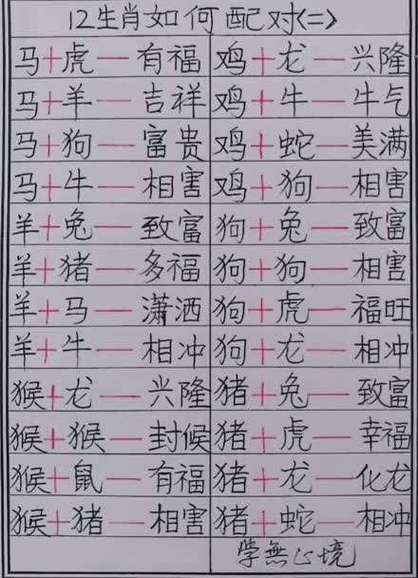 12生肖如何配对<二>
马+虎—有福 鸡+龙—兴隆
马+羊—吉祥 鸡+牛—牛气
马+狗—富贵 鸡+蛇—美满
马+牛—相害 鸡+狗—相害
羊+兔—致富 狗+兔—致富
羊+猪—多福 狗+狗—相害
羊+马—潇洒 狗+虎—福旺
羊+牛—相冲 狗+龙—相冲
猴+龙—兴隆 猪+兔—致富
猴+猴—封候 猪+虎—幸福
猴+鼠—有福 猪+龙—化龙
猴+猪—相害 猪+蛇—相冲
学無心境